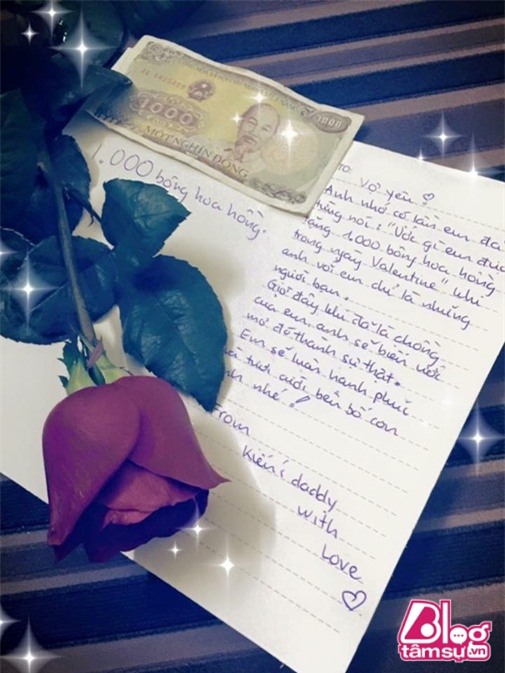 1000
1000
MỘT NGHÌN ĐỒNG
1.000 bông hoa hồng.
TO: Vợ yêu ♡
Anh nhớ có lần em đã
từng nói: "Ước gì em được
tặng 1.000 bông hoa hồng
trong ngày Valentine" khi
anh với em chỉ là những
người bạn.
Giờ đây khi đã là chồng
của em, anh sẽ biến ước
mơ đó thành sự thật.
Em sẽ luôn hạnh phúc
tươi cười bên bố con
nhé!
From
Kiến's daddy
with
Love
♡
Blog
tâmsự.vn